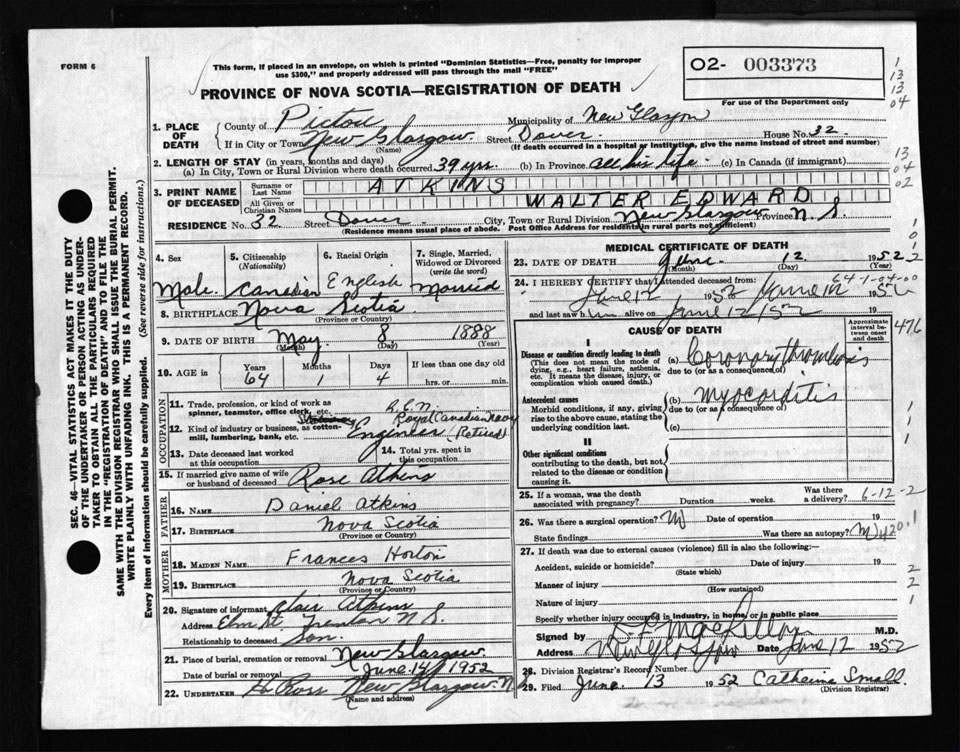 FORM 6
This form, if placed in an envelope, on which is printed "Dominion Statistics—Free, penalty for improper
use $300," and properly addressed will pass through the mail "FREE"
PROVINCE OF NOVA SCOTIA—REGISTRATION OF DEATH
O2- 003373
For use of the Department only
1
13
13
04
13
04
02
1. PLACE OF DEATH
County of Pictou Municipality of New Glasgow
If in City or Town New Glasgow (Name) Street Dover House No. 32
(If death occurred in a hospital or institution, give the name instead of street and number)
2. LENGTH OF STAY (in years, months and days)
(a) In City, Town or Rural Division where death occurred 39 yrs. (b) In Province all his life (c) In Canada (if immigrant)
3. PRINT NAME OF DECEASED
Surname or Last Name ATKINS
All Given or Christian Names WALTER EDWARD
RESIDENCE No. 32 Street Dover City, Town or Rural Division New Glasgow Province N.S.
(Residence means usual place of abode. Post Office Address for residents in rural parts not sufficient)
SEC. 46—VITAL STATISTICS ACT MAKES IT THE DUTY
OF THE UNDERTAKER OR PERSON ACTING AS UNDER-
TAKER TO OBTAIN ALL THE PARTICULARS REQUIRED
IN THE "REGISTRATION OF DEATH" AND TO FILE THE
SAME WITH THE DIVISION REGISTRAR WHO SHALL ISSUE THE BURIAL PERMIT.
WRITE PLAINLY WITH UNFADING INK. THIS IS A PERMANENT RECORD.
Every item of information should be carefully supplied. (See reverse side for instructions.)
4. Sex Male
5. Citizenship (Nationality) Canadian
6. Racial Origin English
7. Single, Married, Widowed or Divorced (write the word) Married
8. BIRTHPLACE Nova Scotia
(Province or Country)
9. DATE OF BIRTH May 8 1888
(Month) (Day) (Year)
10. AGE in Years 64 Months 1 Days 4 If less than one day old hrs. or min.
OCCUPATION
11. Trade, profession, or kind of work as
spinner, teamster, office clerk, etc. R.C.N.
12. Kind of industry or business, as cotton-
mill, lumbering, bank, etc. Royal Canadian Navy
Engineer (Retired)
13. Date deceased last worked
at this occupation
14. Total yrs. spent in
this occupation
15. If married give name of wife
or husband of deceased Rose Atkins
FATHER
16. NAME Daniel Atkins
17. BIRTHPLACE Nova Scotia
(Province or Country)
MOTHER
18. MAIDEN NAME Frances Horton
19. BIRTHPLACE Nova Scotia
(Province or Country)
20. Signature of informant Clair Atkins
Address Elm St. Trenton N S.
Relationship to deceased Son.
21. Place of burial, cremation or removal New Glasgow
Date of burial or removal June 14 1952
22. UNDERTAKER Ross New Glasgow N.S.
(Name and address)
MEDICAL CERTIFICATE OF DEATH
23. DATE OF DEATH June 12 1952
(Month) (Day) (Year)
24. I HEREBY CERTIFY that I attended deceased from: 64-1-04-00
June 12 1952 June 12 1952
and last saw him alive on June 12 1952 19
CAUSE OF DEATH
Approximate interval between onset and death
476
I
Disease or condition directly leading to death
(This does not mean the mode of
dying, e.g., heart failure, asthenia,
etc. It means the disease, injury, or
complication which caused death.)
(a) Coronary thrombosis
due to (or as a consequence of)
Antecedent causes
Morbid conditions, if any, giving
rise to above cause, stating the
underlying condition last.
(b) myocarditis
due to (or as a consequence of)
(c)
II
Other significant conditions
contributing to the death, but not
related to the disease or condition
causing it.
25. If a woman, was the death
associated with pregnancy? Duration weeks. Was there a delivery? 6-12-2
26. Was there a surgical operation? Date of operation 19
State findings Was there an autopsy? 420.1
27. If death was due to external causes (violence) fill in also the following:—
Accident, suicide or homicide? Date of injury 19
(State which)
Manner of injury
(How sustained)
Nature of injury
Specify whether injury occurred in industry, in home, or in public place
Signed by M.D.
Address New Glasgow Date June 12 1952
28. Division Registrar's Record Number
29. Filed June 13 1952 Catherine Small
(Division Registrar)